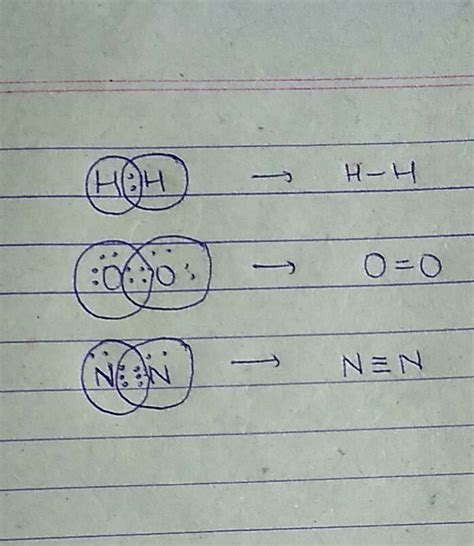 H:H → H-H
O::O → O=O
N:::N → N≡N